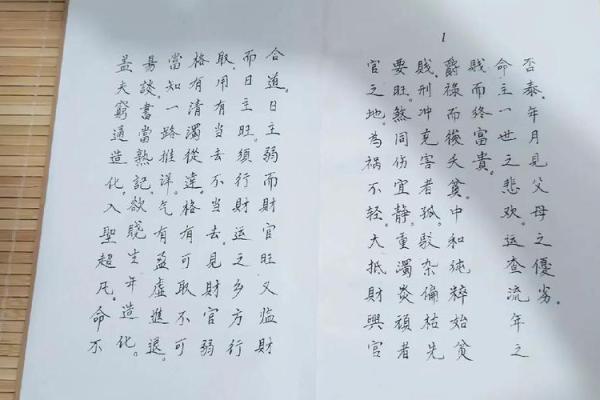 否泰。年月見父母之優劣。
命主一世之悲欢。运查流年之
賎而终富贵。
爵祿而後夭貧。中和純粹始貧
贱刑冲克害者孤。駁杂偏枯先
要旺。煞同伤宜静。重濁炎頑者
官之地。為祸不轻。大抵財興官
1
合道。日主弱而財官旺又临財
而日主旺。须行財运之乡方行
取。用有当去不当去。見財官弱
格有清濁從違。格有可取不可
當知一路推洋。气有盈虚進退。
昜談。書當熟記。欲賎生年造化。
盖夫窮通造化。入聖超凡。命不